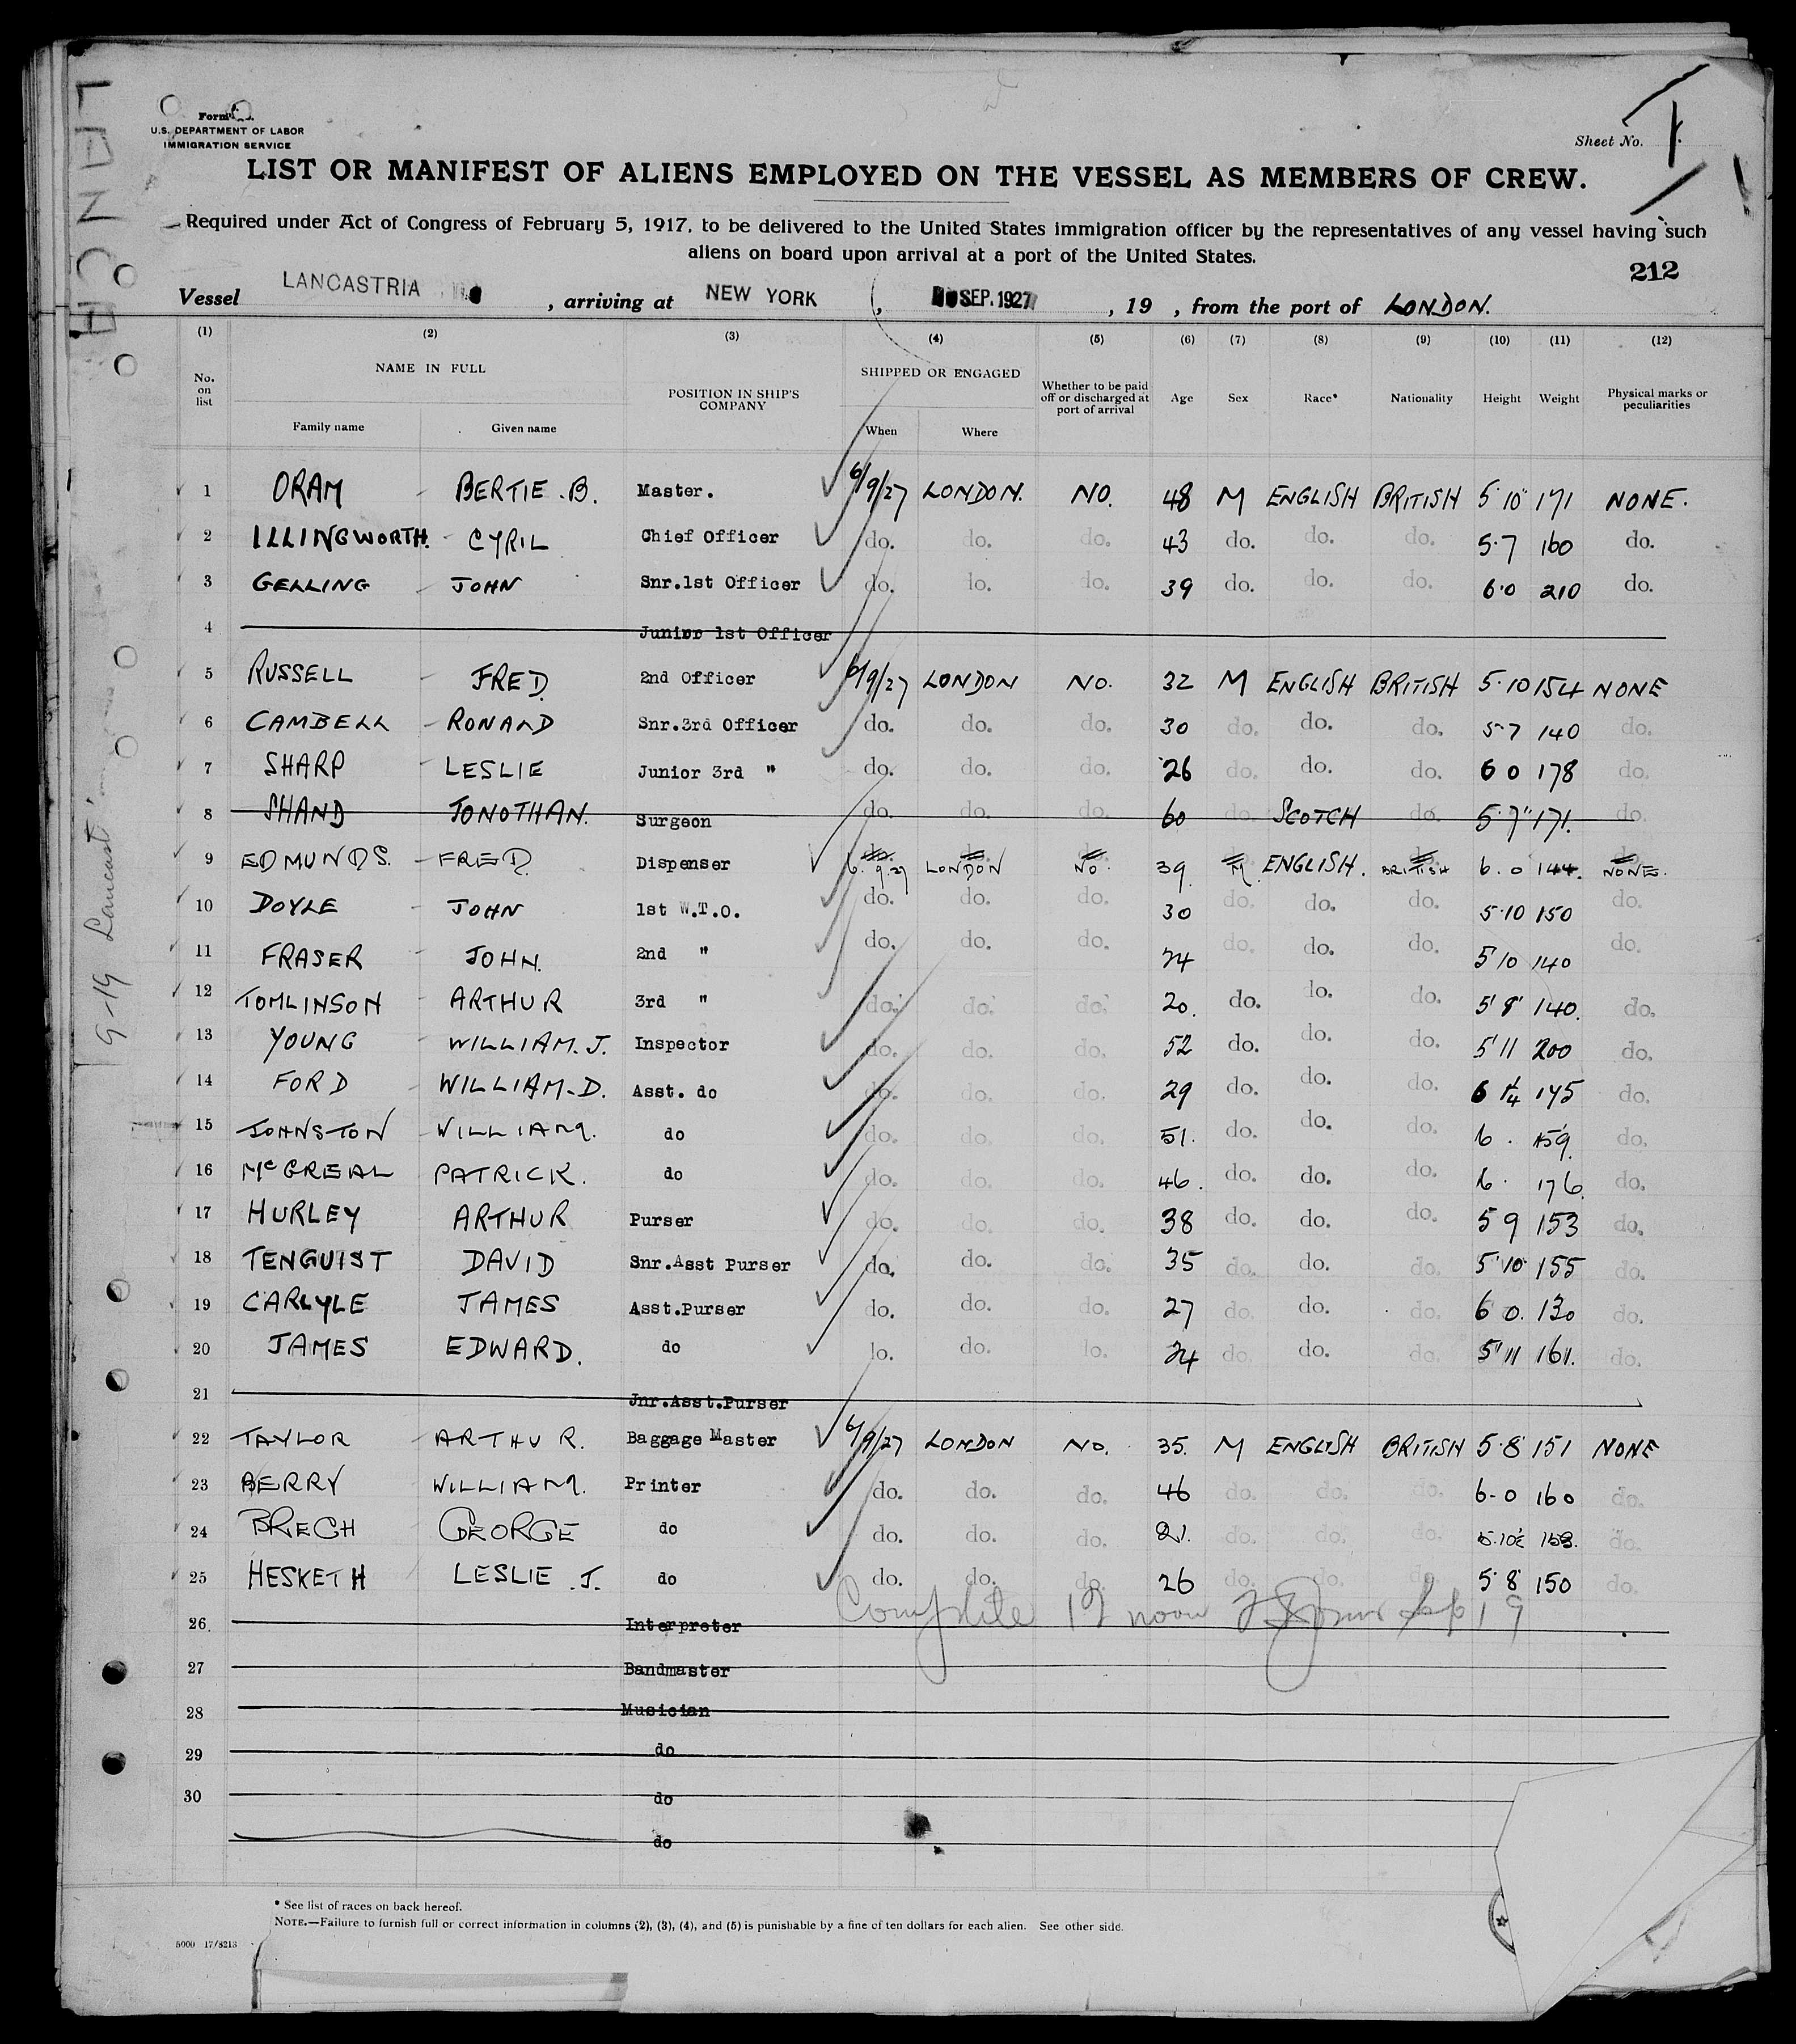 LANCA
Form
U.S. DEPARTMENT OF LABOR
IMMIGRATION SERVICE
Sheet No. 1.
LIST OR MANIFEST OF ALIENS EMPLOYED ON THE VESSEL AS MEMBERS OF CREW.
Required under Act of Congress of February 5, 1917, to be delivered to the United States immigration officer by the representatives of any vessel having such
aliens on board upon arrival at a port of the United States.
212
Vessel LANCASTRIA, arriving at NEW YORK, SEP. 1927, 19 , from the port of LONDON.
(1) (2) (3) (4) (5) (6) (7) (8) (9) (10) (11) (12)
No. on list NAME IN FULL Family name Given name POSITION IN SHIP'S COMPANY SHIPPED OR ENGAGED When Where Whether to be paid off or discharged at port of arrival Age Sex Race* Nationality Height Weight Physical marks or peculiarities
1 ORAM BERTIE. B. Master. 6/9/27 LONDON. NO. 48 M ENGLISH BRITISH 5'10" 171 NONE.
2 ILLINGWORTH. CYRIL Chief Officer do. do. do. 43 do. do. do. 5.7 160 do.
3 GELLING JOHN Snr.1st Officer do. lo. do. 39 do. do. do. 6.0 210 do.
4 Junior 1st Officer
5 RUSSELL FRED. 2nd Officer 6/9/27 LONDON NO. 32 M ENGLISH BRITISH 5.10 154 NONE
6 CAMBELL RONALD Snr.3rd Officer do. do. do. 30 do. do. do. 5.7 140 do.
7 SHARP LESLIE Junior 3rd " do. do. do. 26 do. do. do. 6 0 178 do.
8 SHAND JONOTHAN. Surgeon do. do. do. 60 do. SCOTCH do. 5'7" 171. do.
9 EDMUNDS. FRED. Dispenser 6.9.27 LONDON NO. 39. M. ENGLISH. BRITISH 6.0 144. NONE.
10 DOYLE JOHN 1st W.T.O. do. do. do. 30 do. do. do. 5.10 150 do.
11 FRASER JOHN. 2nd " do. do. do. 24 do. do. do. 5'10 140 do.
12 TOMLINSON ARTHUR 3rd " do. do. do. 20. do. lo. do. 5'8' 140. do.
13 YOUNG WILLIAM. J. Inspector do. do. do. 52 do. do. do. 5'11 200 do.
14 FORD WILLIAM-D. Asst. do do. do. do. 29 do. do. do. 6 1/4 175 do.
15 JOHNSTON WILLIAM. do do. do. do. 51. do. do. do. 6. 159. do.
16 McGREAL PATRICK. do do. do. do. 46. do. do. do. 6. 176. do.
17 HURLEY ARTHUR Purser do. do. do. 38 do. do. do. 5 9 153 do.
18 TENGUIST DAVID Snr.Asst Purser do. do. do. 35 do. do. do. 5'10 155 do.
19 CARLYLE JAMES Asst.Purser do. do. do. 27 do. do. do. 6 0. 130 do.
20 JAMES EDWARD. do lo. do. lo. 24 do. do. do. 5'11 161. do.
21 Jnr.Asst.Purser
22 TAYLOR ARTHUR. Baggage Master 6/9/27 LONDON NO. 35. M ENGLISH BRITISH 5.8 151 NONE
23 BERRY WILLIAM. Printer do. do. do. 46 do. do. do. 6-0 160 do.
24 BRECH GEORGE do do. do. do. 21. do. do. do. 5.10½ 153. do.
25 HESKETH LESLIE .J. do do. do. do. 26 do. do. do. 5.8 150 do.
Complete 12 noon Sep 19
26. Interpreter
27 Bandmaster
28 Musician
29 do
30 do
do
9-19 Lancast
* See list of races on back hereof.
NOTE.—Failure to furnish full or correct information in columns (2), (3), (4), and (5) is punishable by a fine of ten dollars for each alien. See other side.
5000 17/8213